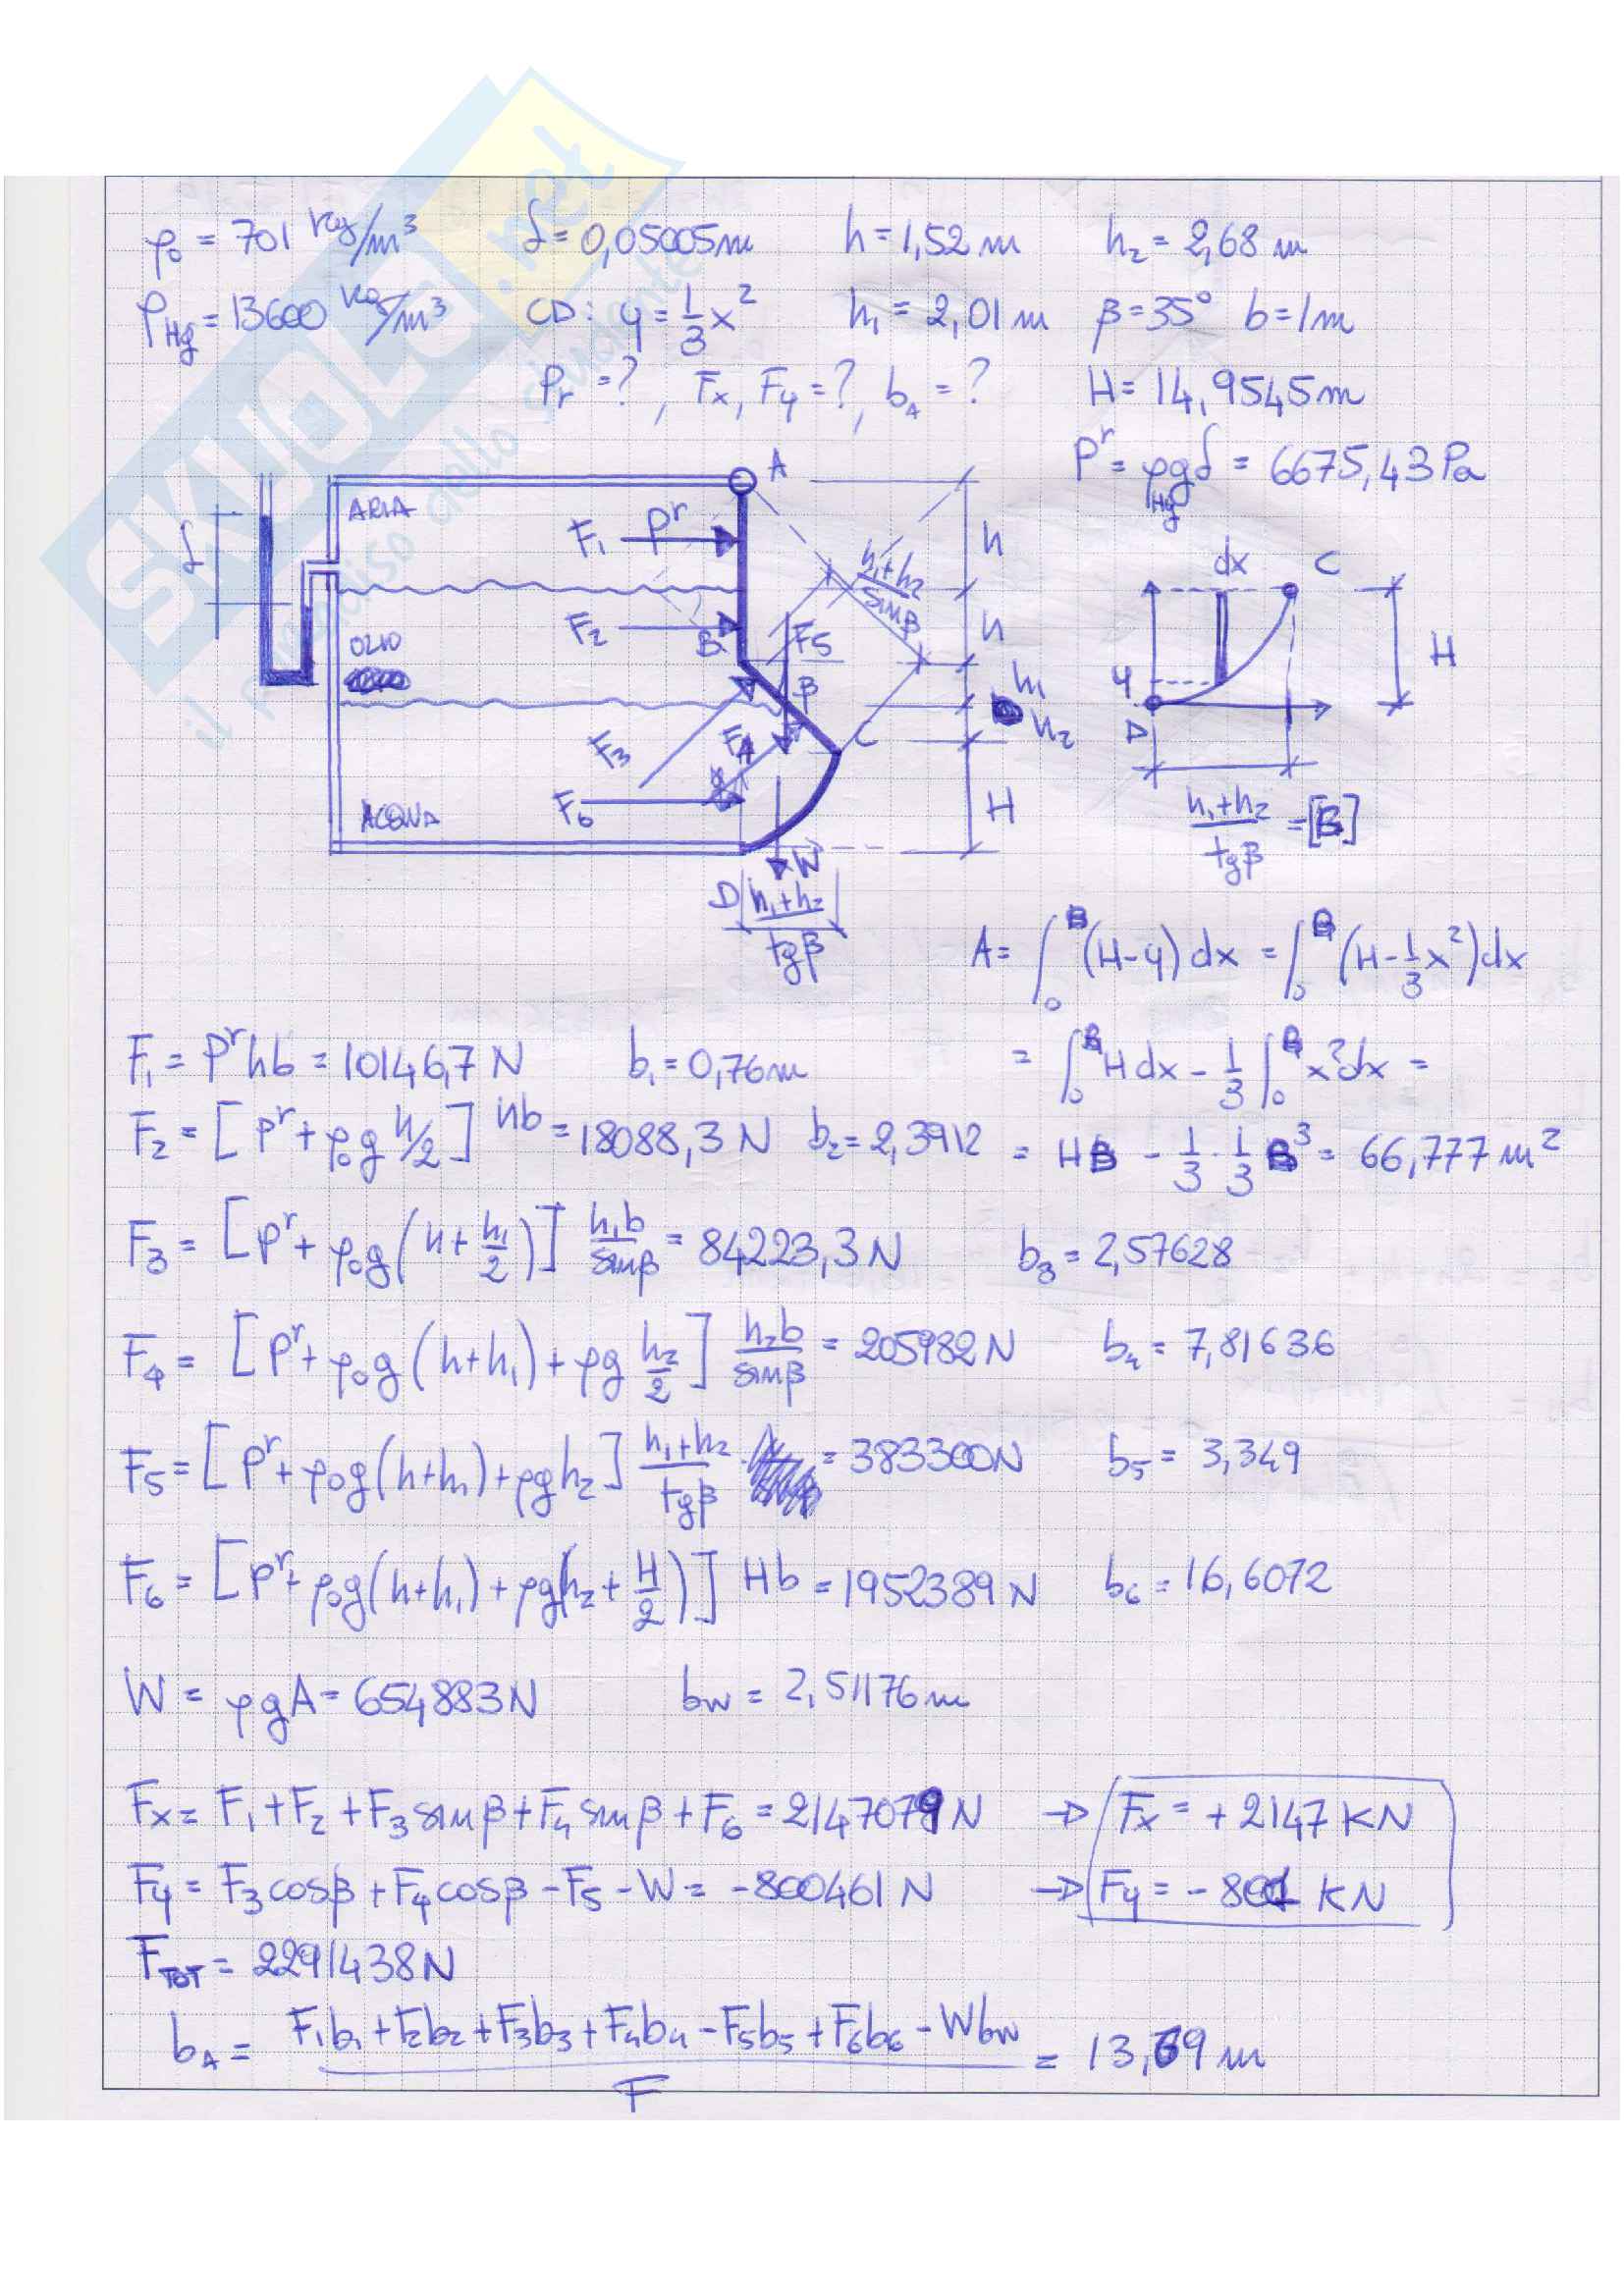 SKUOLA.net
il paradiso dello studente
ρ₀ = 701 kg/m³ δ = 0,05005 m h = 1,52 m h₂ = 2,68 m
ρHg = 13600 kg/m³ CD: y = 1/3 x² h₁ = 2,01 m β = 35° b = 1 m
Pr = ?, Fx, Fy = ?, bA = ? H = 14,9545 m
Pʳ = ρHg g δ = 6675,43 Pa
A
ARIA
δ
F₁ Pʳ
h
(h₁+h₂)/sinβ
dx C
F₂
OLIO
B
F₅
h
β
h₁
h₂
y
H
D
F₃
F₄
C
F₆
ACQUA
H
W
D (h₁+h₂)/tgβ
(h₁+h₂)/tgβ = [B]
A = ∫₀ᴮ (H-y) dx = ∫₀ᴮ (H - 1/3 x²) dx
= ∫₀ᴮ H dx - 1/3 ∫₀ᴮ x² dx =
= HB - 1/3 · 1/3 B³ = 66,777 m²
F₁ = Pʳhb = 10146,7 N b₁ = 0,76 m
F₂ = [Pʳ + ρ₀g h/2] hb = 18088,3 N b₂ = 2,3912
F₃ = [Pʳ + ρ₀g(h + h₁/2)] h₁b/sinβ = 84223,3 N b₃ = 2,57628
F₄ = [Pʳ + ρ₀g(h+h₁) + ρg h₂/2] h₂b/sinβ = 205982 N b₄ = 7,81636
F₅ = [Pʳ + ρ₀g(h+h₁) + ρgh₂] (h₁+h₂)/tgβ = 383300 N b₅ = 3,349
F₆ = [Pʳ + ρ₀g(h+h₁) + ρg(h₂ + H/2)] Hb = 1952389 N b₆ = 16,6072
W = ρgA = 654883 N bW = 2,51176 m
Fx = F₁ + F₂ + F₃ sinβ + F₄ sinβ + F₆ = 2147079 N → Fx = +2147 KN
Fy = F₃ cosβ + F₄ cosβ - F₅ - W = -800461 N → Fy = -801 KN
FTOT = 2291438 N
bA = (F₁b₁ + F₂b₂ + F₃b₃ + F₄b₄ - F₅b₅ + F₆b₆ - WbW)/F = 13,69 m